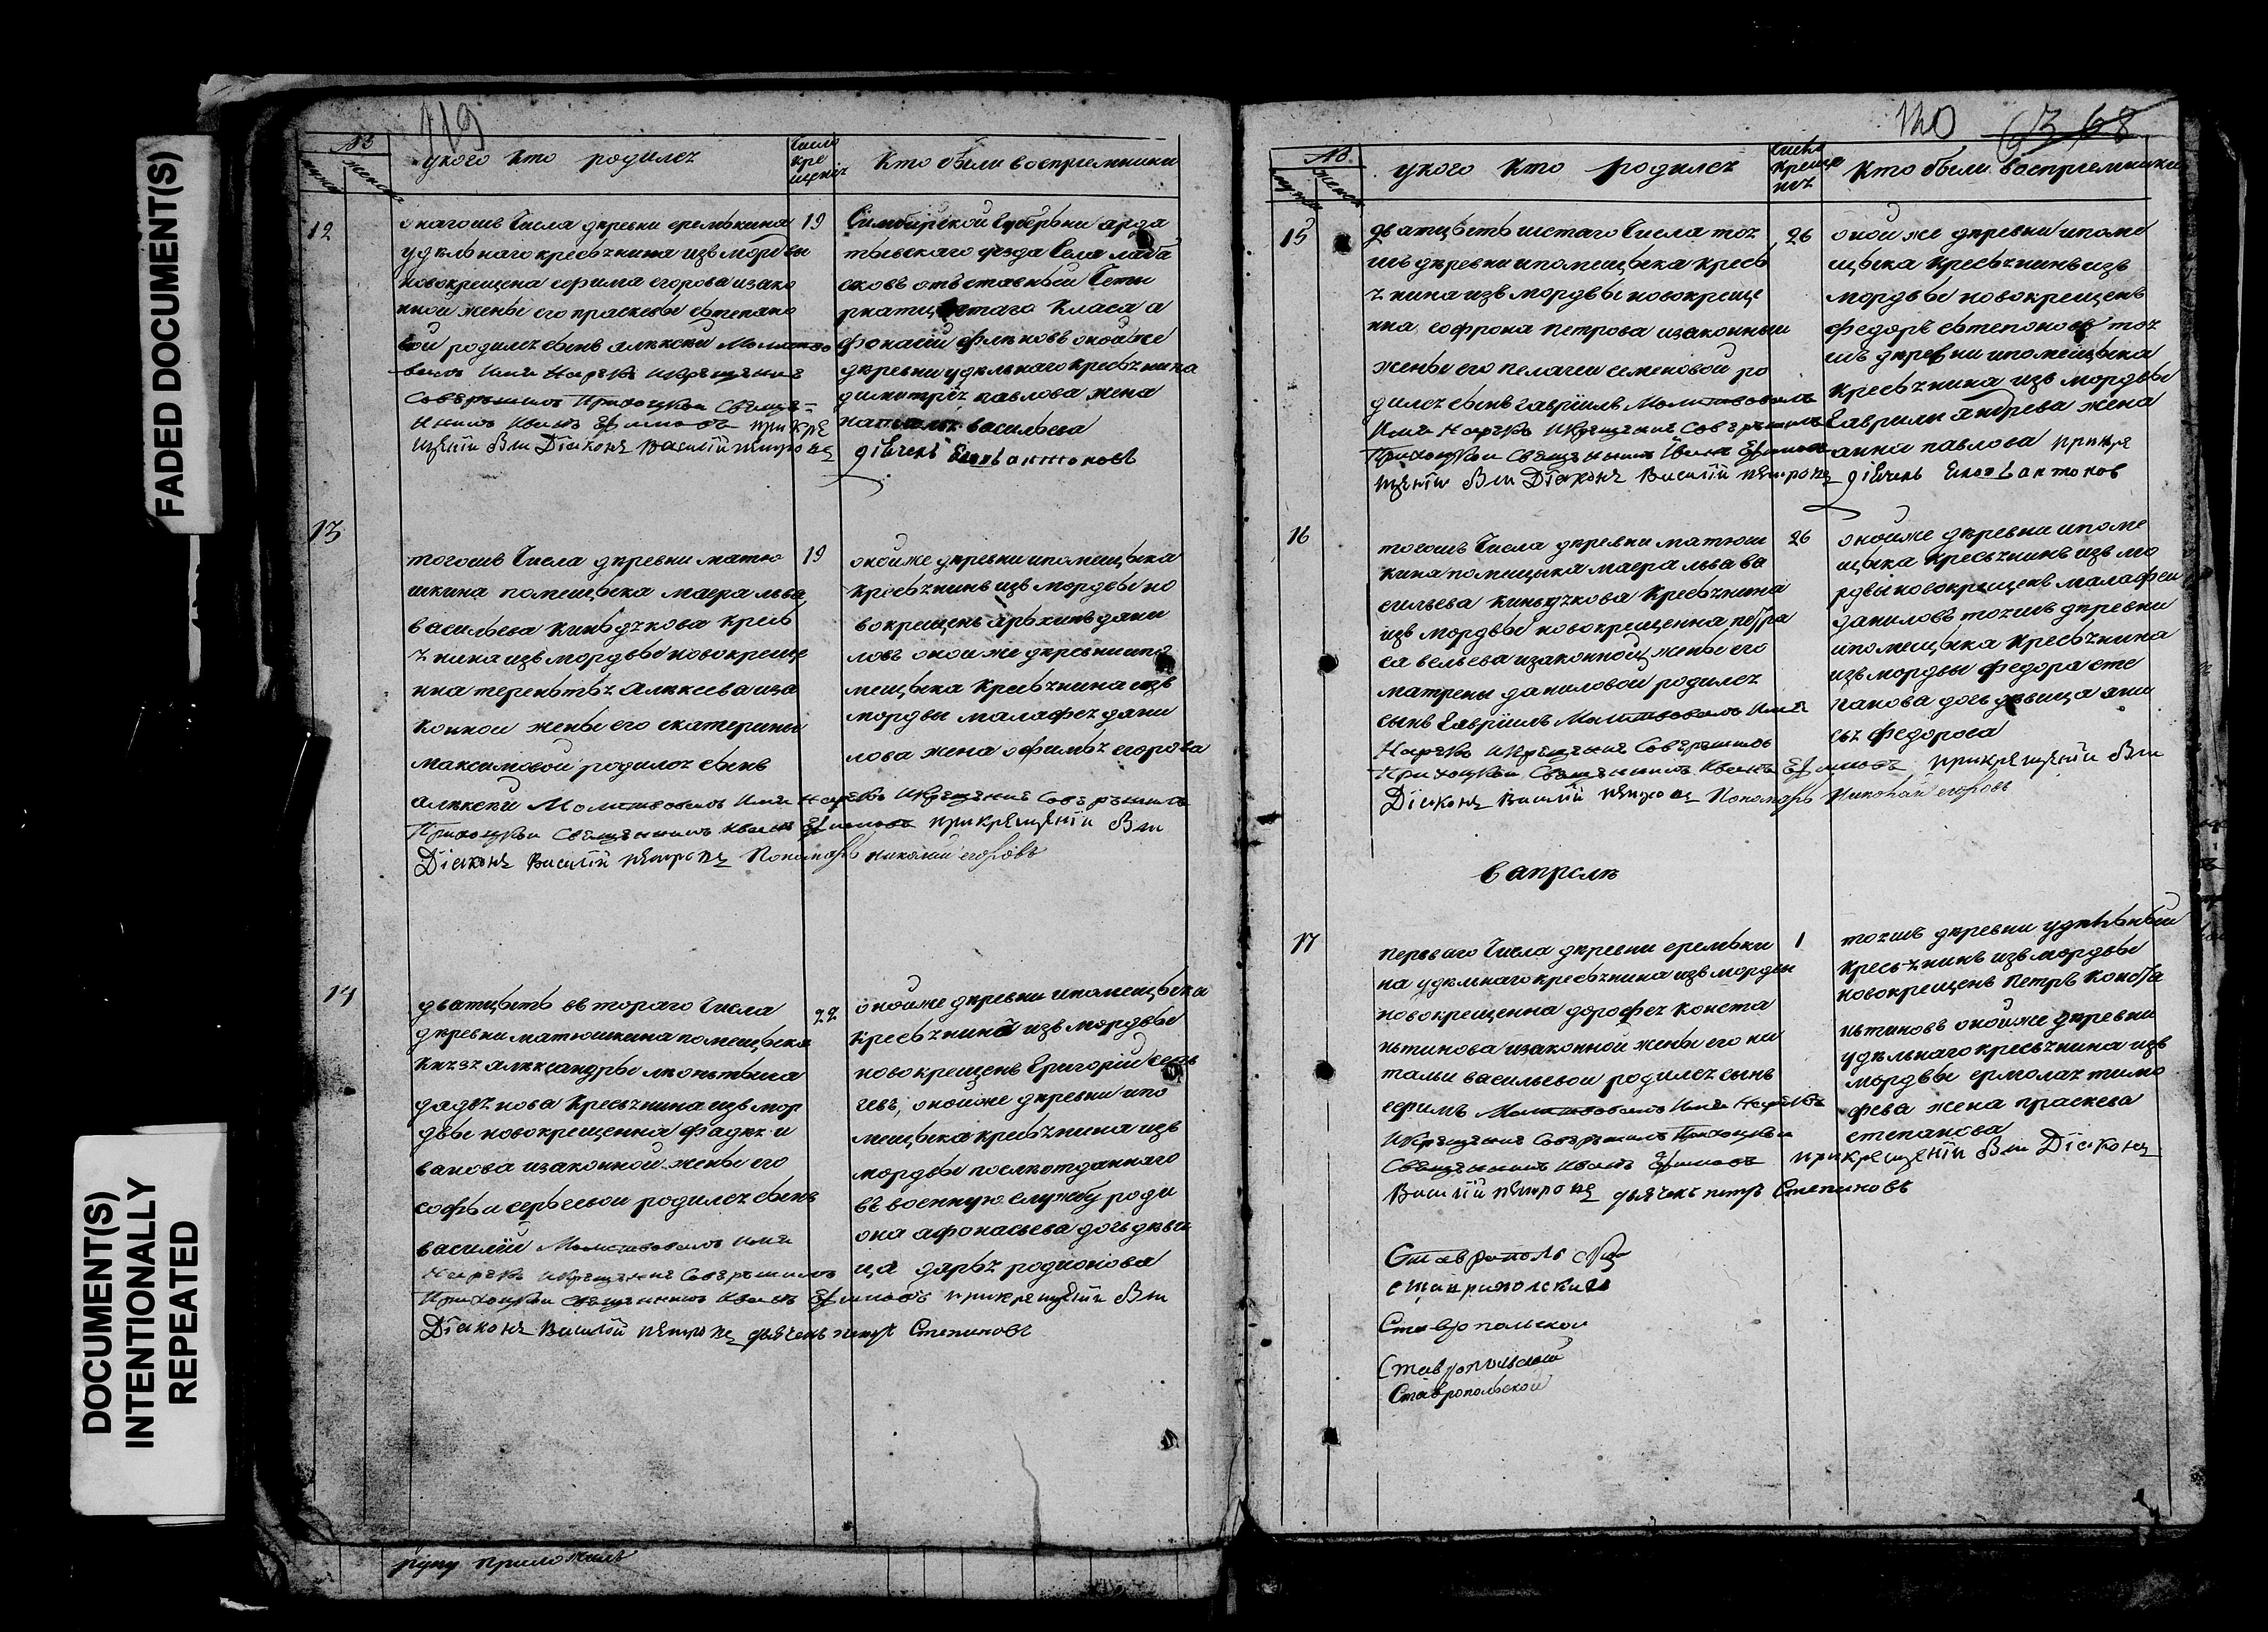 FADED DOCUMENT(S)
DOCUMENT(S)
INTENTIONALLY
REPEATED
119
№
мужск
женск
укого кто родилсz
Число
кре
щениz
кто были восприемники
12
онагошъ Числа деревни еремькина
удельнаго кресьzнина изъ мордвы
новокрещена ефима егорова изако
нной жены его праскевьи степано
вой родилсz сынъ алексей Молитво
валъ Имя Нарекъ ИКрещение
Совершилъ Приходской Свяще-
нникъ Иванъ Ефимовъ прикре
щении были Дiаконъ Василiй петровъ
19
Симбирской Губерьни арда
товьскаго уезда Села
отъставный Четы
рнатцетаго Класа а
фонасий онойже
деревни удельнаго кресьzнина
димитриz павлова жена
наталья васильева
дiячекъ Егоръ антоновъ
13
тогошъ Числа деревни матю
шкина помещьика маера льва
васильева киньдzкова кресь
zнина изъ мордвы новокреще
нна тереньтьz алексеева иза
конной жены его екатерины
максимовой родилсz сынъ
алексей Молитвовалъ Имя Нарекъ ИКрещение Совершилъ
Приходской Священникъ Иванъ Ефимовъ прикрещении были
Дiаконъ Василiй петровъ Пономарь николай егоровъ
19
онойже деревни ипомещьика
кресьzнинъ изъ мордвы но
вокрещенъ архипъ дани
ловъ онойже деревни ипо
мещьика кресьzнина изъ
мордвы малафеz дани
лова жена офимьz егорова
14
дватцеть въ тораго Числа
деревни матюшкина помещьика
кнzзz александры леонтьича
кресьzнина изъ мор
двы новокрещенна фадеz и
ванова изаконной жены его
софьи сергеевой родилсz сынъ
василий Молитвовалъ Имя
Нарекъ ИКрещение Совершилъ
Приходской Священникъ Иванъ Ефимовъ прикрещении были
Дiаконъ Василiй петровъ дьячекъ петръ Степановъ
22
онойже деревни ипомещьика
кресьzнинъ изъ мордвы
новокрещенъ Григорий
онойже деревни ипо
мещьика кресьzнина изъ
мордвы послеотданнаго
въ военную службу роди
она афонасьева дочь деви
ца дарьz родионова
руку приложилъ
120
68
№
мужск
женск
укого кто родилсz
Число
Креще
ниz
Кто были восприемники
15
дватцеть шестаго Числа тоz
шъ деревни ипомещьика кресь
zнина изъ мордвы новокреще
нна софрона петрова изаконныи
жены его пелагеи семеновой ро
дилсz сынъ гаврiилъ Молитвовалъ
Имя Нарекъ ИКрещение Совершилъ
Приходской Священникъ Иванъ Ефимовъ
щении были Дiаконъ Василiй петровъ
26
оной же деревни ипоме
щьика кресьzнинъ изъ
мордвы новокрещенъ
федоръ степоновъ тоz
шъ деревни ипомещьика
кресьzнина изъ мордвы
Гаврилы андрева жена
анна павлова прикре
дiячекъ Егоръ антоновъ
16
тогошъ Числа деревни матюш
кина помещьика маера льва ва
сильева киньдzкова кресьzнина
изъ мордвы новокрещенна петра
савельева изаконной жены его
матрены даниловой родилсz
сынъ гаврiилъ Молитвовалъ Имя
Нарекъ ИКрещение Совершилъ
Приходской Священникъ Иванъ Ефимовъ прикрещении были
Дiаконъ Василiй петровъ Пономарь Николай егоровъ
26
онойже деревни ипоме
щьика кресьzнинъ изъ мо
рдвы новокрещенъ малафеи
даниловъ тоzшъ деревни
ипомещьика кресьzнина
изъ мордвы федора сте
панова дочь девица ани
сьz федорова
в апреле
17
перьваго Числа деревни еремьки
на удельнаго кресьzнина изъ мордвы
новокрещенна дорофеz конста
ньтинова изаконной жены его на
тальи васильевой родилсz сынъ
ефимъ Молитвовалъ Имя Нарекъ
ИКрещение Совершилъ Приходской
Священникъ Иванъ Ефимовъ прикрещении были Дiаконъ
Василiй петровъ дьячекъ петръ Степановъ
1
тоzшъ деревни удельный
кресьzнинъ изъ мордвы
новокрещенъ петръ конста
ньтиновъ онойже деревни
удельнаго кресьzнина изъ
мордвы ермолаz тимо
феева жена праскева
степанова
Ставрополь
ставрапольския
Ставропольской
Ставропольский
Ставропольской